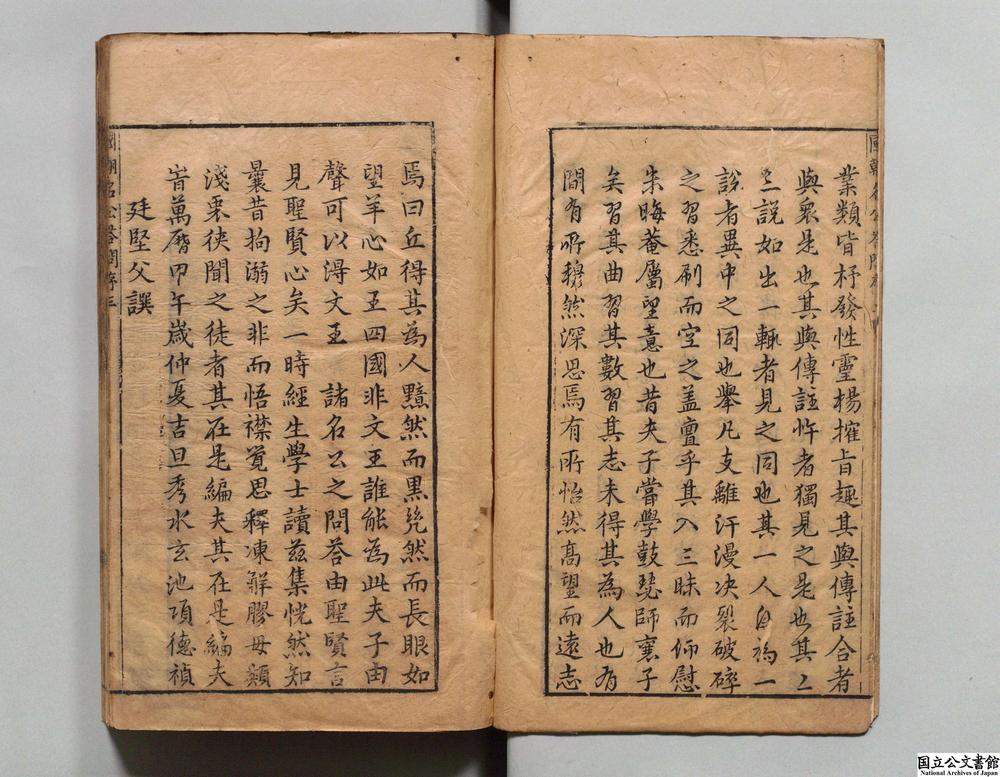 業類皆杼發性靈揚搉旨趣其與傳註合者
與衆是也其與傳註忤者獨見之是也其二
三說如出一轍者見之同也其一人自為一
說者異中之同也舉凡支離汗漫决裂破碎
之習悉刷而空之盖亶乎其入三昧而仰慰
朱晦菴屬望意也昔夫子嘗學鼓琴師襄子
矣習其曲習其數習其志未得其為人也有
間有所穆然深思焉有所怡然髙望而遠志
國朝名公答問序三
焉曰丘得其為人黮然而黒兟然而長眼如
望羊心如王四國非文王誰能為此夫子由
聲可以淂文王 諸名公之問答由聖賢言
見聖賢心矣一時經生學士讀茲集恍然知
曩昔拘溺之非而悟襟覚思釋凍觧膠毋纇
淺衷俠聞之徒者其在是編夫其在是編夫
旹萬曆甲午嵗仲夏吉旦秀水玄池項德禎
廷堅父譔
國朝名公答問序三
国立公文書館
National Archives of Japan